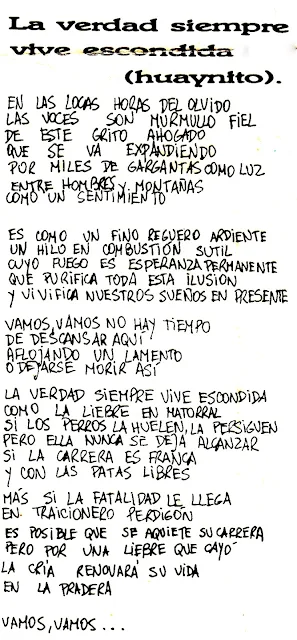 La verdad siempre
vive escondida
(huaynito).
EN LAS LOCAS HORAS DEL OLVIDO
LAS VOCES SON MURMULLO FIEL
DE ESTE GRITO AHOGADO
QUE SE VA EXPANDIENDO
POR MILES DE GARGANTAS COMO LUZ
ENTRE HOMBRES Y MONTAÑAS
COMO UN SENTIMIENTO
ES COMO UN FINO REGUERO ARDIENTE
UN HILO EN COMBUSTIÓN SUTIL
CUYO FUEGO ES ESPERANZA PERMANENTE
QUE PURIFICA TODA ESTA ILUSIÓN
Y VIVIFICA NUESTROS SUEÑOS EN PRESENTE
VAMOS, VAMOS NO HAY TIEMPO
DE DESCANSAR AQUÍ
AFLOJANDO UN LAMENTO
O DEJARSE MORIR ASÍ
LA VERDAD SIEMPRE VIVE ESCONDIDA
COMO LA LIEBRE EN MATORRAL
SI LOS PERROS LA HUELEN, LA PERSIGUEN
PERO ELLA NUNCA SE DEJA ALCANZAR
SI LA CARRERA ES FRANCA
Y CON LAS PATAS LIBRES
MÁS SI LA FATALIDAD LE LLEGA
EN TRAICIONERO PERDIGÓN
ES POSIBLE QUE SE AQUIETE SU CARRERA
PERO POR UNA LIEBRE QUE CAYÓ
LA CRÍA RENOVARÁ SU VIDA
EN LA PRADERA
VAMOS, VAMOS...